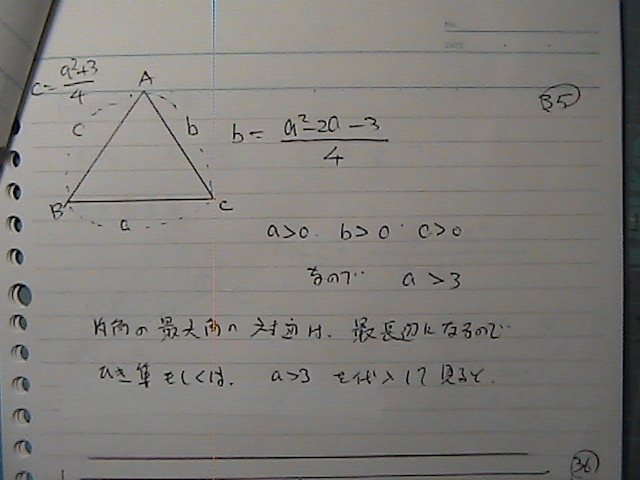 c = (a²+3)/4
A
35
c
b
b = (a²-2a-3)/4
B
C
a
a>0. b>0. c>0
なので a>3
内角の最大角の対辺は、最長辺になるので
ひき算もしくは、a>3 を代入して見ると、
36